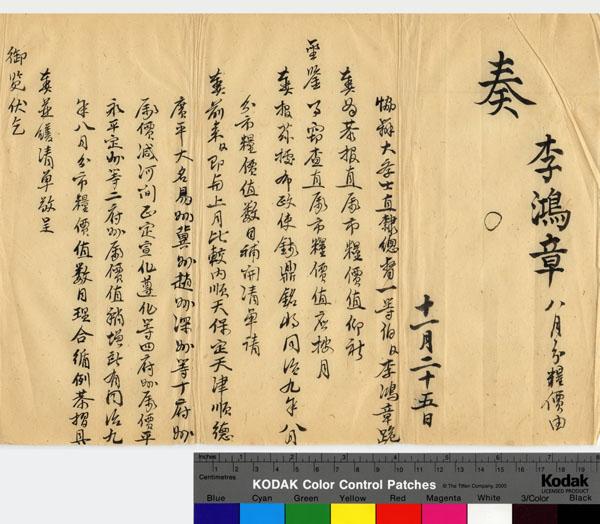 李鴻章 八月分糧價由
奏
十一月二十五日
協辦大學士直隸總督一等伯臣李鴻章跪
奏為恭報直屬市糧價值仰祈
聖鑒事竊查直屬市糧價值應按月
奏報茲據布政使錢鼎銘將同治九年八月
分市糧價值數目補開清單請
奏前來臣即與上月比較內順天保定天津順德
廣平大名易州冀州趙州深州等十府州
屬價減河間正定宣化遵化等四府州屬價平
永平定州等二府州屬價值稍增所有同治九
年八月分市糧價值數目理合循例恭摺具
奏並繕清單敬呈
御覽伏乞
Inches 1 2 3 4 5 6 7 8
Centimetres 1 2 3 4 5 6 7 8 9 10 11 12 13 14 15 16 17 18 19
KODAK Color Control Patches © The Tiffen Company, 2000 Kodak
LICENSED PRODUCT
Blue Cyan Green Yellow Red Magenta White 3/Color Black